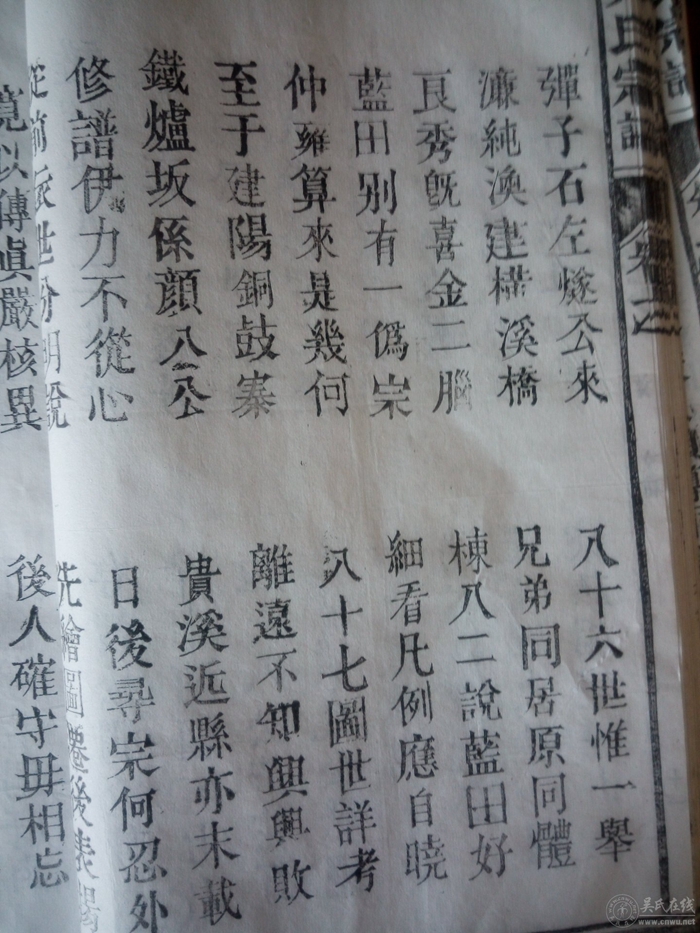 氏宗譜 卷之
彈子石左燧公來 八十六世惟一舉
濂純渙建溪橋 兄弟同居原同體
艮秀旣喜金二腦 棟八二說藍田好
藍田別有一僞宗 細看凡例應自曉
仲雍算來是幾何 八十七圖世詳考
至于建陽銅鼓寨 離遠不知興與敗
鐵爐坂係顔八公 貴溪近縣亦末載
修譜伊力不從心 日後尋宗何忍外
前派世分明說 先繪圖後表
以傳眞嚴核異 後人確守毋相忘
吴氏在线
www.cnwu.net